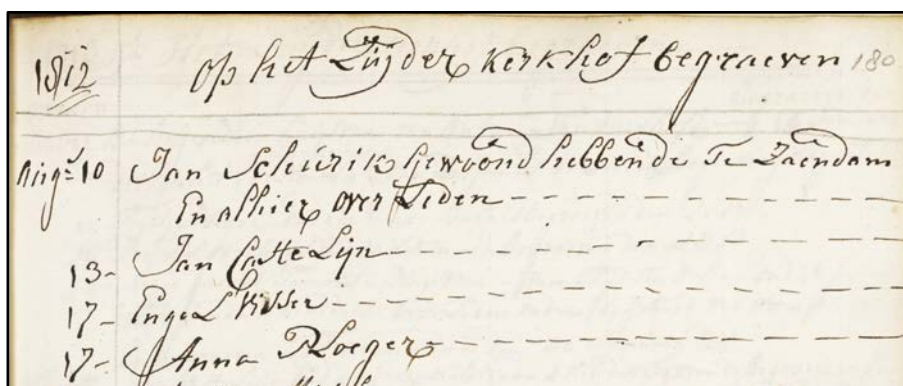 1812 Op het Zuÿder Kerkhof begraeven 180
Augs 10 Jan Scheurik gewoond hebbende Te Zaendam
En alhier over Leden
13- Jan Catte Lijn
17- Engel Visser
17- Anna PLoeger